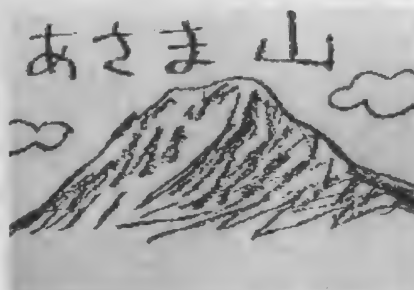 あさま山